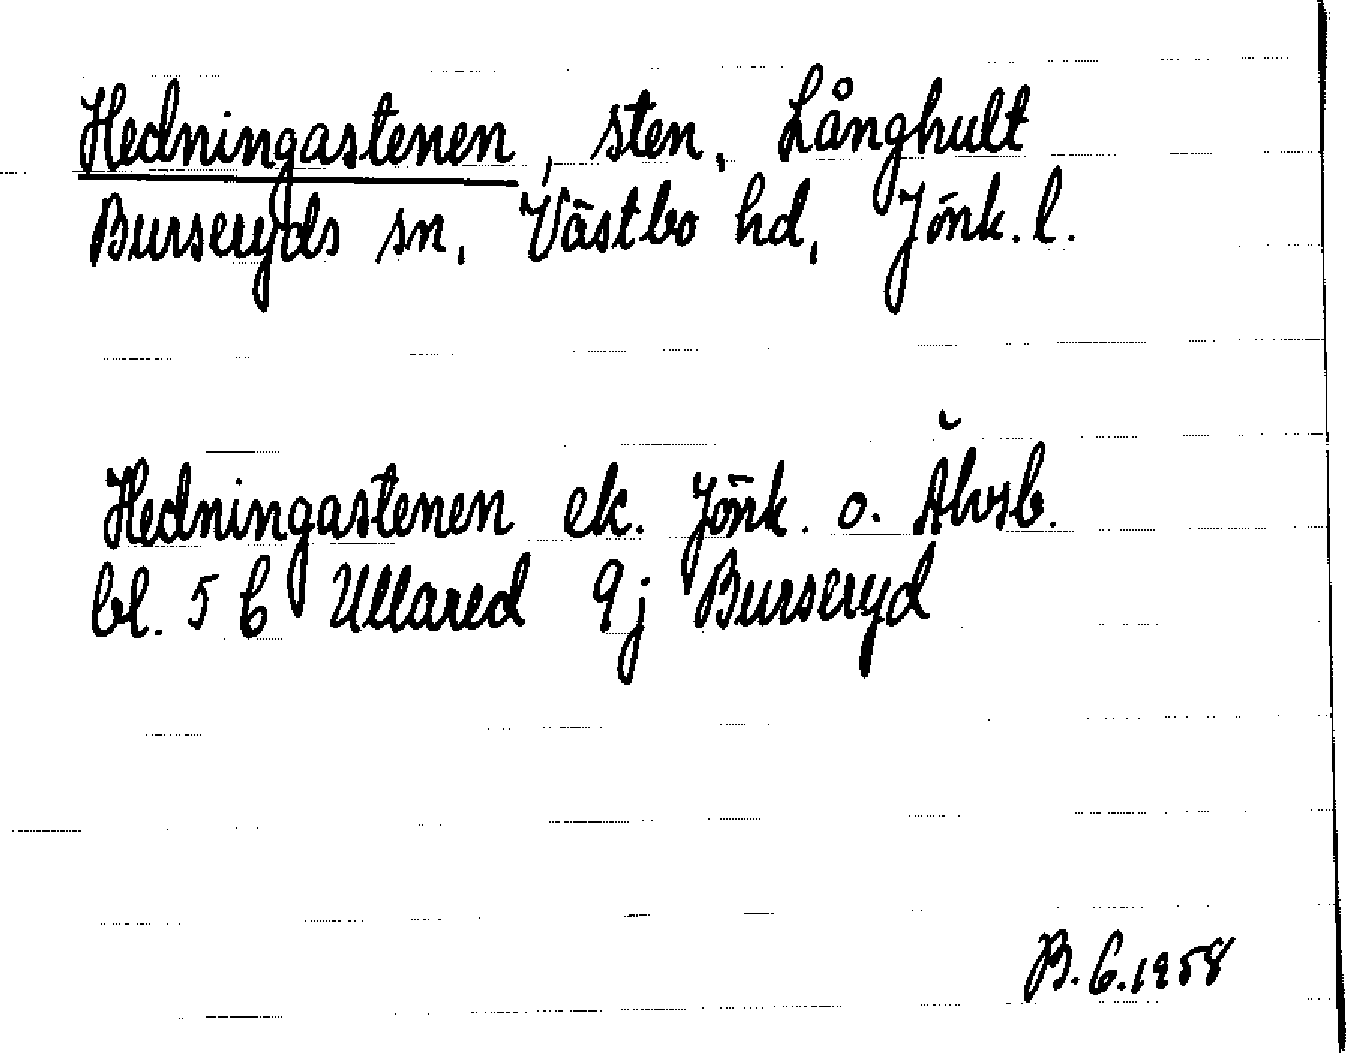 Hedningastenen, sten, Långhult
Burseryds sn, Västbo hd, Jönk. l.
Hedningastenen ek. Jönk. o. Älvsb.
bl. 5 C Ullared 9j Burseryd
B. G. 1958